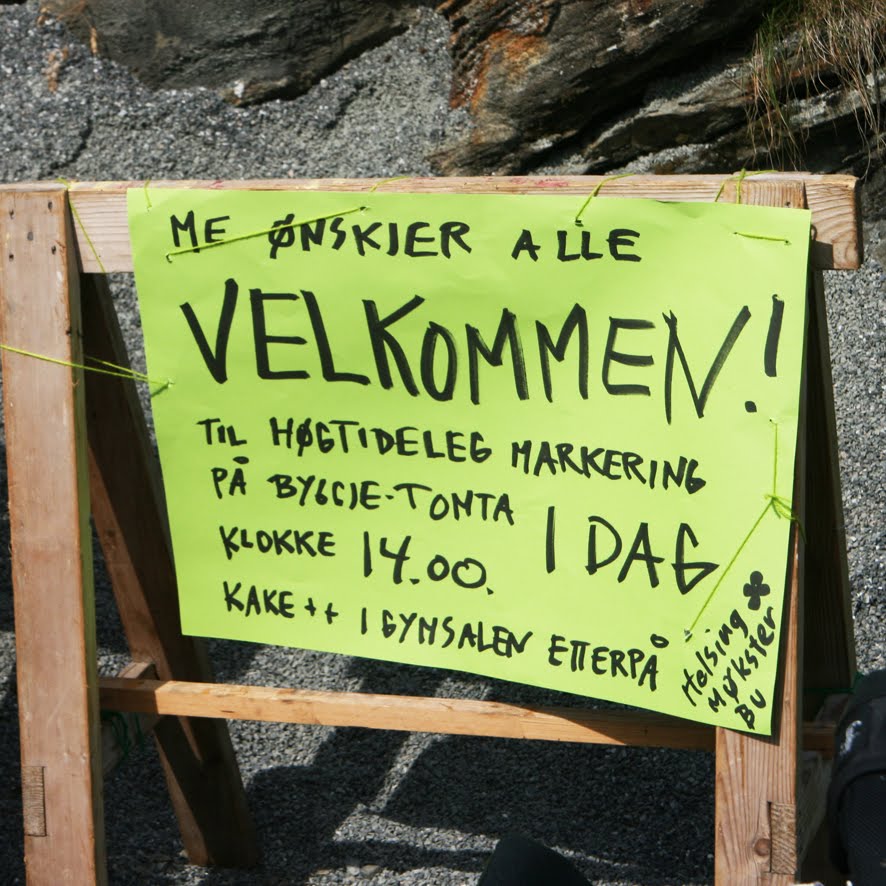 ME ØNSKJER ALLE
VELKOMMEN!
TIL HØGTIDELEG MARKERING
PÅ BYGGJE-TOMTA I DAG
KLOKKE 14.00.
KAKE ++ I GYMSALEN ETTERPÅ
Helsing
Møkster
BU